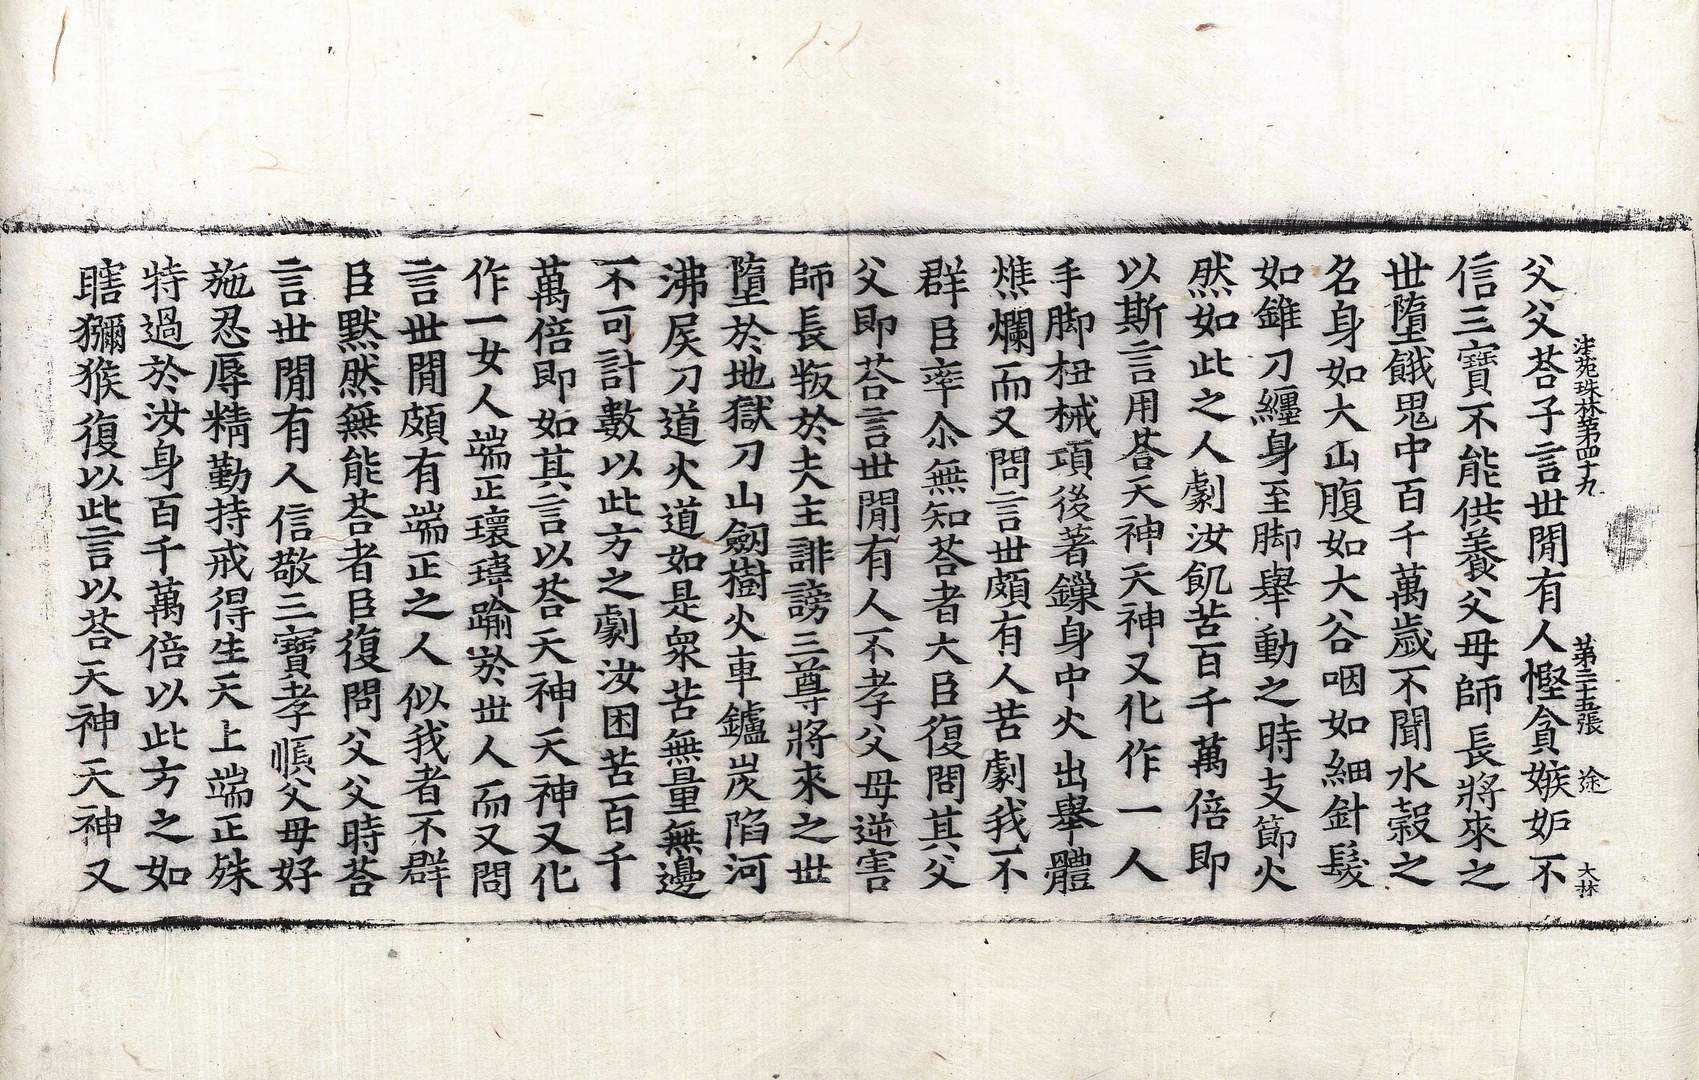 法苑珠林第四十九 第三十五張 途 大林
父父荅子言世閒有人慳貪嫉妬不
信三寶不能供養父母師長將來之
世墮餓鬼中百千萬歲不聞水穀之
名身如大山腹如大谷咽如細針髮
如錐刀纏身至脚舉動之時支節火
然如此之人劇汝飢苦百千萬倍即
以斯言用荅天神天神又化作一人
手脚杻械項後著鏁身中火出舉體
燋爛而又問言世頗有人苦劇我不
群臣率尒無知荅者大臣復問其父
父即荅言世閒有人不孝父母逆害
師長叛於夫主誹謗三尊將來之世
墮於地獄刀山劒樹火車鑪炭陷河
沸屎刀道火道如是衆苦無量無邊
不可計數以此方之劇汝困苦百千
萬倍即如其言以荅天神天神又化
作一女人端正瓌瑋踰於世人而又問
言世閒頗有端正之人似我者不群
臣默然無能荅者臣復問父父時荅
言世閒有人信敬三寶孝順父母好
施忍辱精勤持戒得生天上端正殊
特過於汝身百千萬倍以此方之如
瞎獼猴復以此言以荅天神天神又